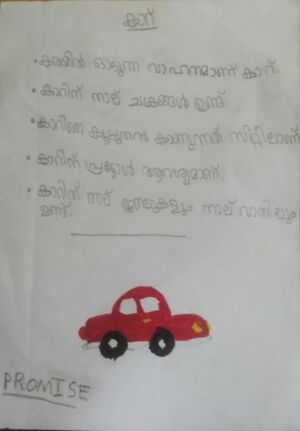 കാറ്
• കരയിൽ ഓടുന്ന വാഹനമാണ് കാറ്.
• കാറിന് നാല് ചക്രങ്ങൾ ഉണ്ട്.
• കാറിനെ കൂടുതൽ കാണുന്നത് സിറ്റിലാണ്
• കാറിന് പെട്രോൾ ആവശ്യമാണ്.
• കാറിന് നാല് ജനലുകളും നാല് വാതിലും
ഉണ്ട്.
PROMISE